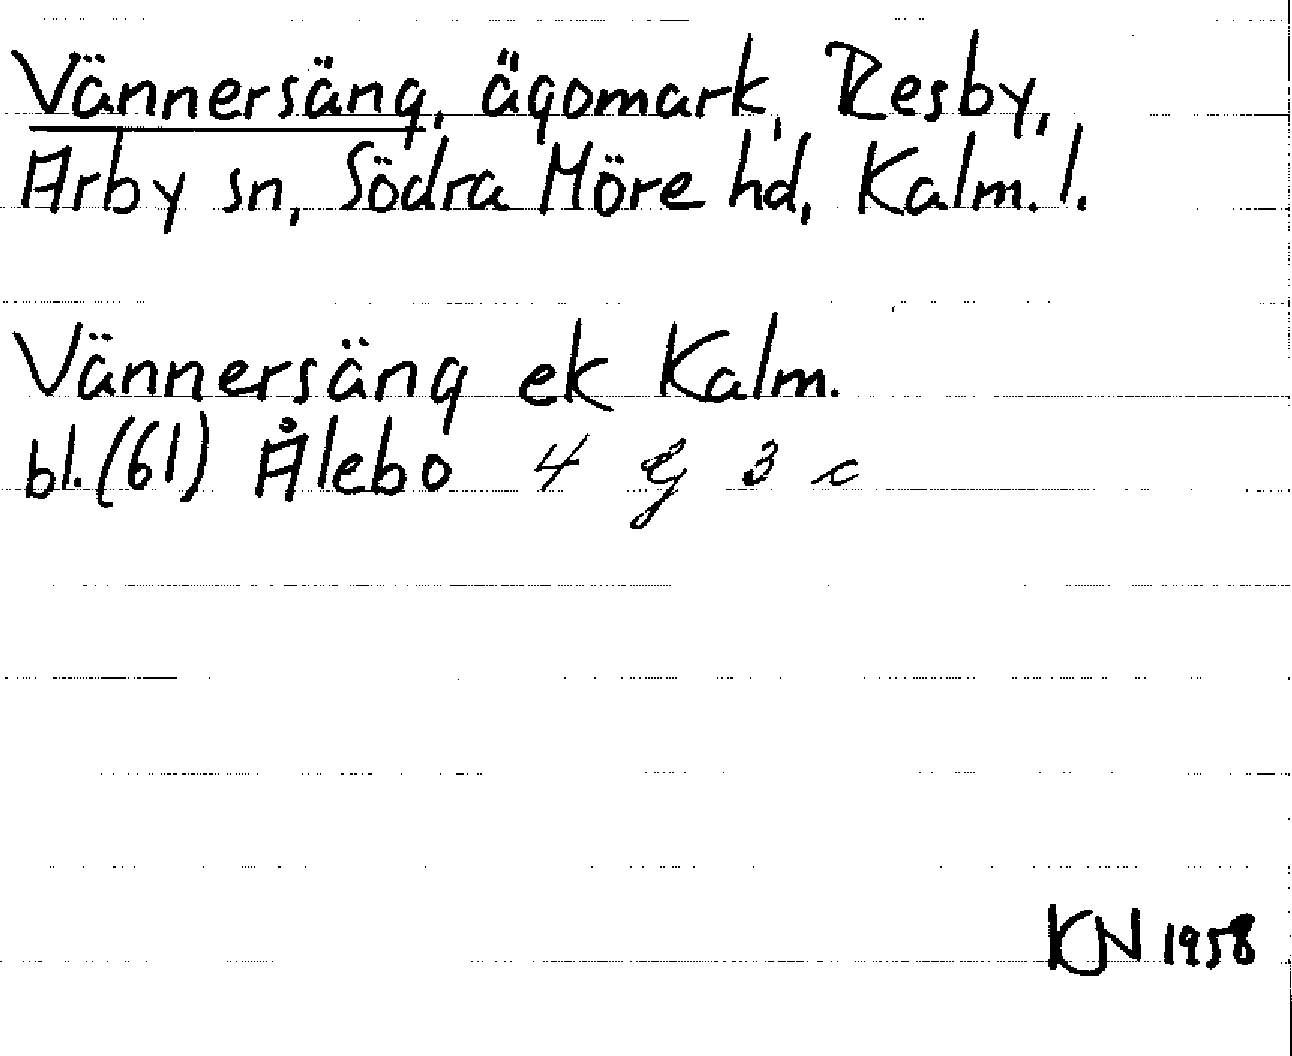 Vännersäng, ägomark, Resby,
Arby sn, Södra Möre hd, Kalm. l.
Vännersäng ek Kalm.
bl. (61) Ålebo 4 g 3 c
KN 1958